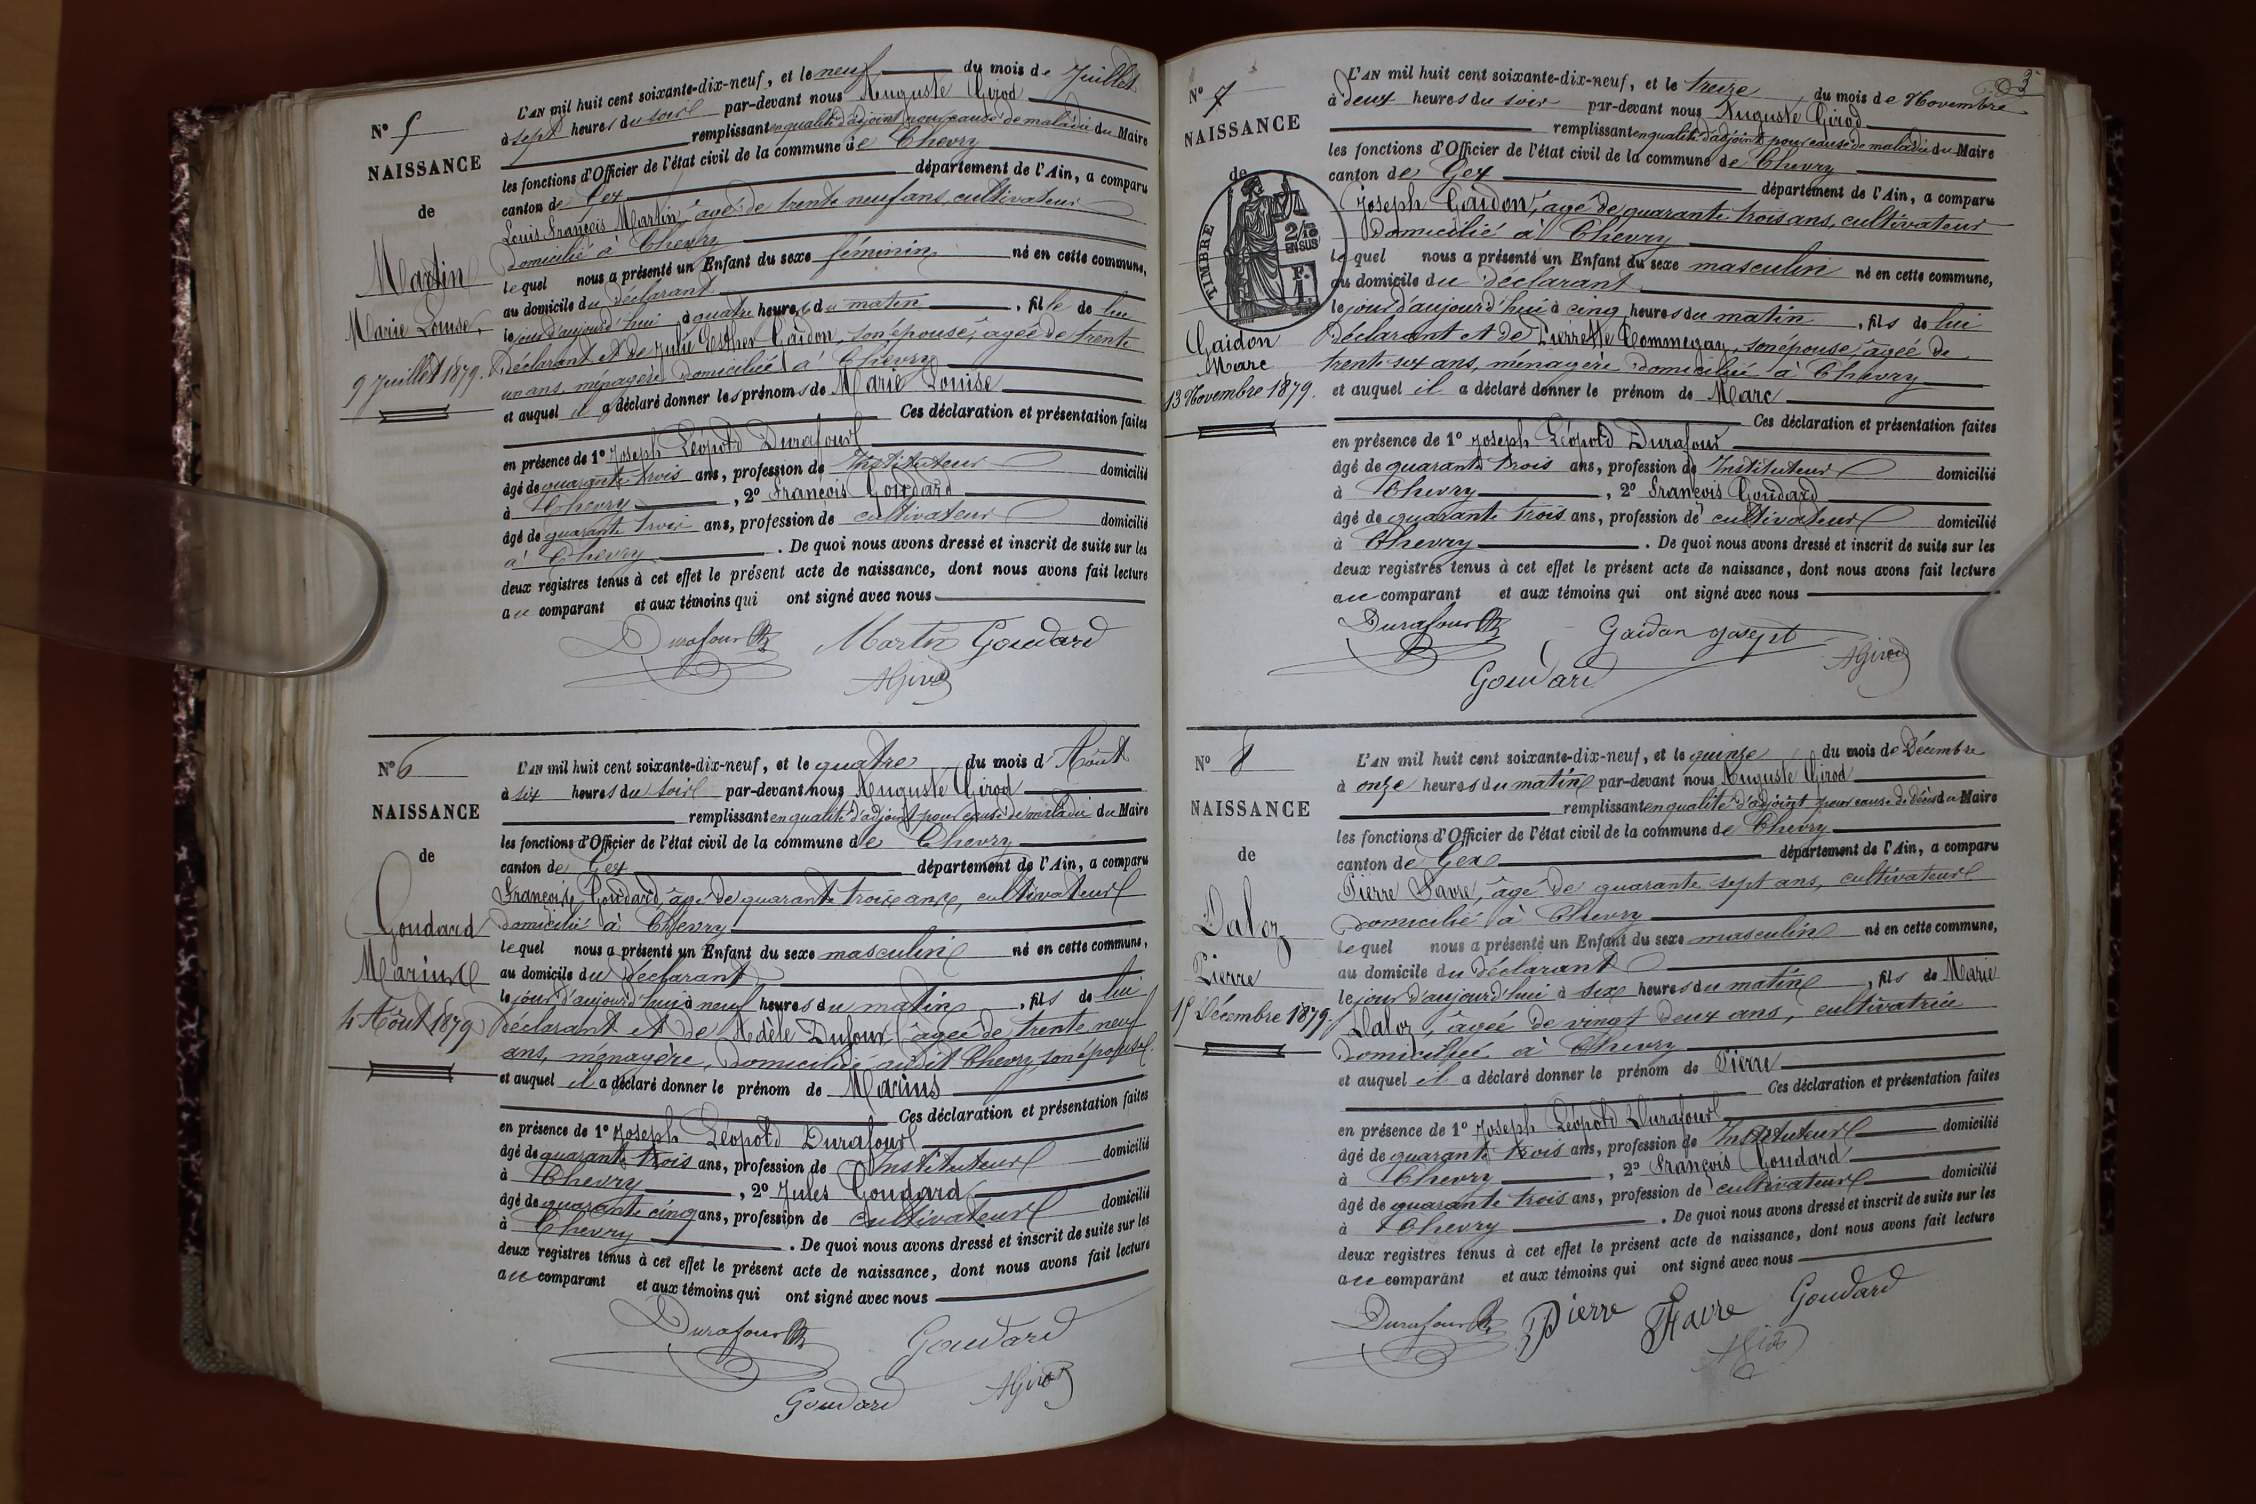 N° 5
NAISSANCE
de
Martin
Marie Louise,
9 Juillet 1879.
L'AN mil huit cent soixante-dix-neuf, et le neuf du mois de Juillet
à sept heures du soir par-devant nous Auguste Girod
remplissant en qualité d'adjoint pour cause de maladie du Maire
les fonctions d'Officier de l'état civil de la commune de Chevry
canton de Gex département de l'Ain, a comparu
Louis François Martin, âgé de trente neuf ans, cultivateur
domicilié à Chevry
lequel nous a présenté un Enfant du sexe féminin né en cette commune,
au domicile du déclarant
le jour d'aujourd'hui à quatre heures du matin, fille de lui
déclarant et de Julie Esther Gaidon, son épouse, âgée de trente
un ans, ménagère domiciliée à Chevry
et auquel il a déclaré donner les prénoms de Marie Louise
Ces déclaration et présentation faites
en présence de 1° Joseph Léopold Durafour
âgé de quarante trois ans, profession de Instituteur domicilié
à Chevry, 2° François Goudard
âgé de quarante trois ans, profession de cultivateur domicilié
à Chevry. De quoi nous avons dressé et inscrit de suite sur les
deux registres tenus à cet effet le présent acte de naissance, dont nous avons fait lecture
au comparant et aux témoins qui ont signé avec nous
Durafour Martin Goudard
AGirod
N° 6
NAISSANCE
de
Goudard
Marius
4 Août 1879
L'AN mil huit cent soixante-dix-neuf, et le quatre du mois d'Août
à six heures du soir par-devant nous Auguste Girod
remplissant en qualité d'adjoint pour cause de maladie du Maire
les fonctions d'Officier de l'état civil de la commune de Chevry
canton de Gex département de l'Ain, a comparu
François Goudard, âgé de quarante trois ans, cultivateur
domicilié à Chevry
lequel nous a présenté un Enfant du sexe masculin né en cette commune,
au domicile du déclarant
le jour d'aujourd'hui à neuf heures du matin, fils de lui
déclarant et de Adèle Dufour âgée de trente neuf
ans, ménagère, domiciliée audit Chevry, son épouse.
et auquel il a déclaré donner le prénom de Marius
Ces déclaration et présentation faites
en présence de 1° Joseph Léopold Durafour
âgé de quarante trois ans, profession de Instituteur domicilié
à Chevry, 2° Jules Goudard
âgé de quarante cinq ans, profession de cultivateur domicilié
à Chevry. De quoi nous avons dressé et inscrit de suite sur les
deux registres tenus à cet effet le présent acte de naissance, dont nous avons fait lecture
au comparant et aux témoins qui ont signé avec nous
Durafour Goudard
Goudard AGirod
3
N° 7
NAISSANCE
de
TIMBRE
2/10
EN SUS
F.
1.
Gaidon
Marc
13 Novembre 1879.
L'AN mil huit cent soixante-dix-neuf, et le treize du mois de Novembre
à deux heures du soir par-devant nous Auguste Girod
remplissant en qualité d'adjoint pour cause de maladie du Maire
les fonctions d'Officier de l'état civil de la commune de Chevry
canton de Gex département de l'Ain, a comparu
Joseph Gaidon, âgé de quarante trois ans, cultivateur
domicilié à Chevry
lequel nous a présenté un Enfant du sexe masculin né en cette commune,
au domicile du déclarant
le jour d'aujourd'hui à cinq heures du matin, fils de lui
déclarant et de Pierrette son épouse, âgée de
trente six ans, ménagère domiciliée à Chevry
et auquel il a déclaré donner le prénom de Marc
Ces déclaration et présentation faites
en présence de 1° Joseph Léopold Durafour
âgé de quarante trois ans, profession de Instituteur domicilié
à Chevry, 2° François Goudard
âgé de quarante trois ans, profession de cultivateur domicilié
à Chevry. De quoi nous avons dressé et inscrit de suite sur les
deux registres tenus à cet effet le présent acte de naissance, dont nous avons fait lecture
au comparant et aux témoins qui ont signé avec nous
Durafour Gaidon Joseph
Goudard AGirod
N° 8
NAISSANCE
de
Daloz
Pierre
15 Décembre 1879.
L'AN mil huit cent soixante-dix-neuf, et le quinze du mois de Décembre
à onze heures du matin par-devant nous Auguste Girod
remplissant en qualité d'adjoint pour cause de décès du Maire
les fonctions d'Officier de l'état civil de la commune de Chevry
canton de Gex département de l'Ain, a comparu
Pierre Favre, âgé de quarante sept ans, cultivateur
domicilié à Chevry
lequel nous a présenté un Enfant du sexe masculin né en cette commune,
au domicile du déclarant
le jour d'aujourd'hui à six heures du matin, fils de Marie
Daloz, âgée de vingt deux ans, cultivatrice
domiciliée à Chevry
et auquel il a déclaré donner le prénom de Pierre
Ces déclaration et présentation faites
en présence de 1° Joseph Léopold Durafour
âgé de quarante trois ans, profession de Instituteur domicilié
à Chevry, 2° François Goudard
âgé de quarante trois ans, profession de cultivateur domicilié
à Chevry. De quoi nous avons dressé et inscrit de suite sur les
deux registres tenus à cet effet le présent acte de naissance, dont nous avons fait lecture
au comparant et aux témoins qui ont signé avec nous
Durafour Pierre Favre Goudard
AGirod